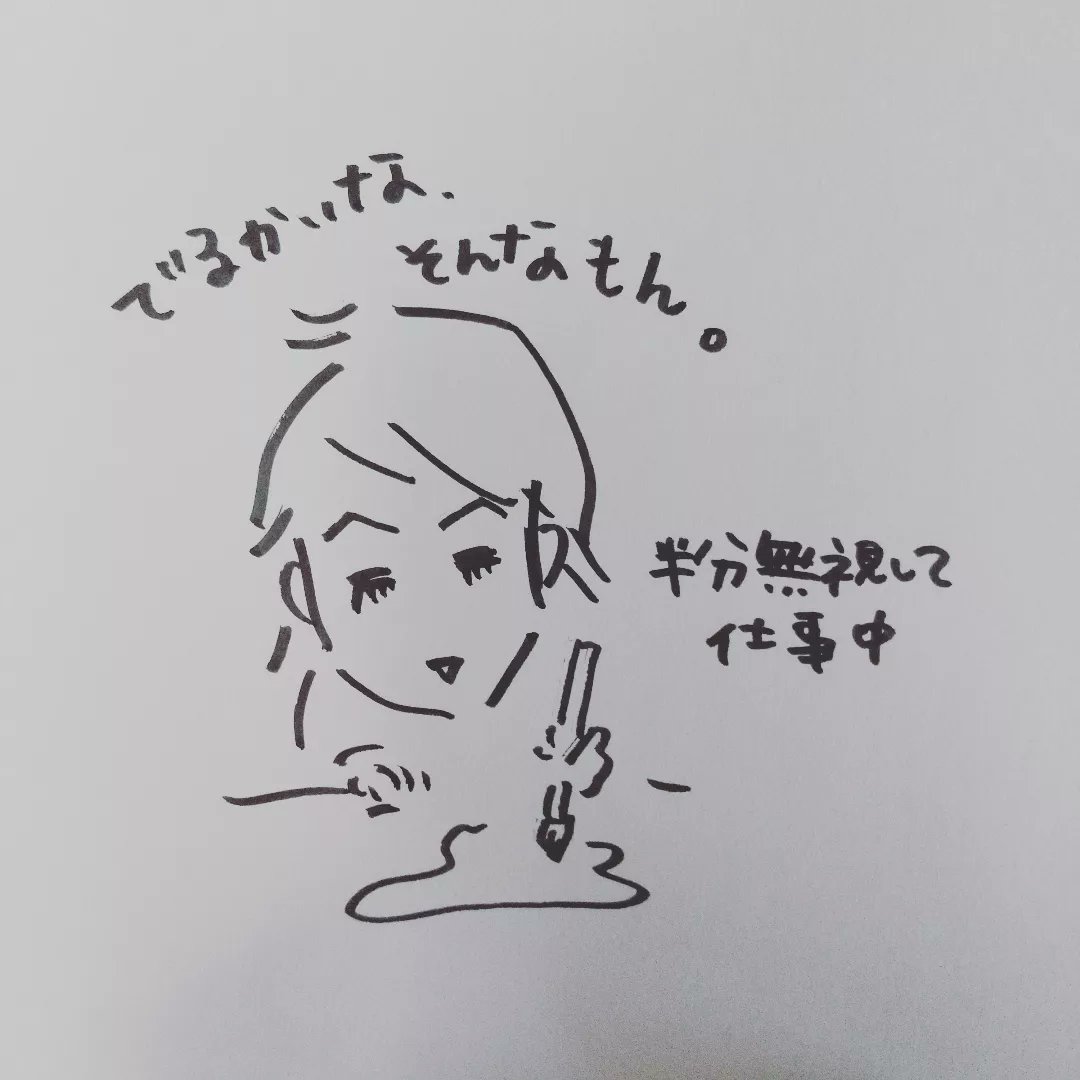 でるかいな、
そんなもん。
半分無視して
仕事中